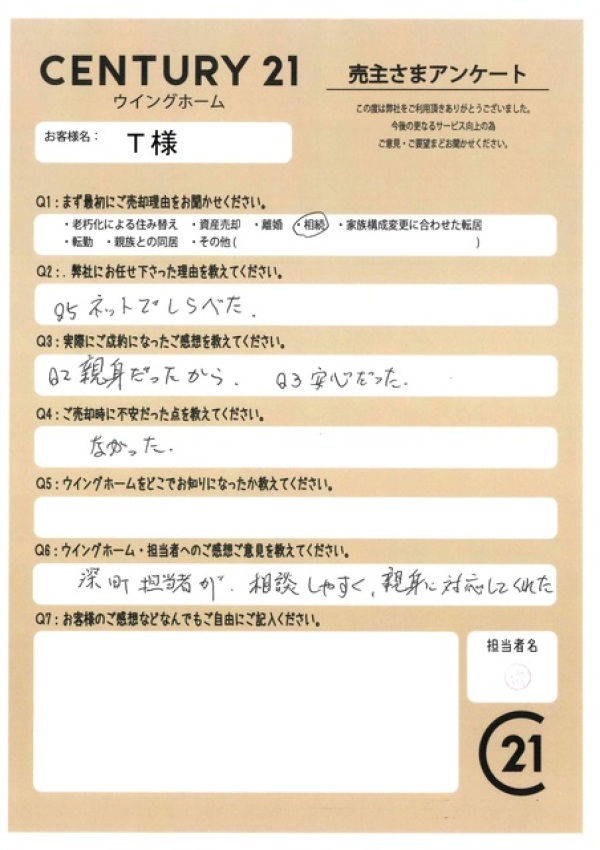 CENTURY 21
ウイングホーム
売主さまアンケート
この度は弊社をご利用頂きありがとうございました。
今後の更なるサービス向上の為
ご意見・ご要望まどお聞かせください。
お客様名： T様
Q1：まず最初にご売却理由をお聞かせください。
・老朽化による住み替え ・資産売却 ・離婚 ・相続 ・家族構成変更に合わせた転居
・転勤 ・親族との同居 ・その他( )
Q2：. 弊社にお任せ下さった理由を教えてください。
Q5 ネットでしらべた.
Q3：実際にご成約になったご感想を教えてください。
Q2 親身だったから. Q3 安心だった.
Q4：ご売却時に不安だった点を教えてください。
なかった.
Q5：ウイングホームをどこでお知りになったか教えてください。
Q6：ウイングホーム・担当者へのご感想ご意見を教えてください。
深町 担当者が. 相談しやすく, 親身に対応してくれた
Q7：お客様のご感想などなんでもご自由にご記入ください。
担当者名
21